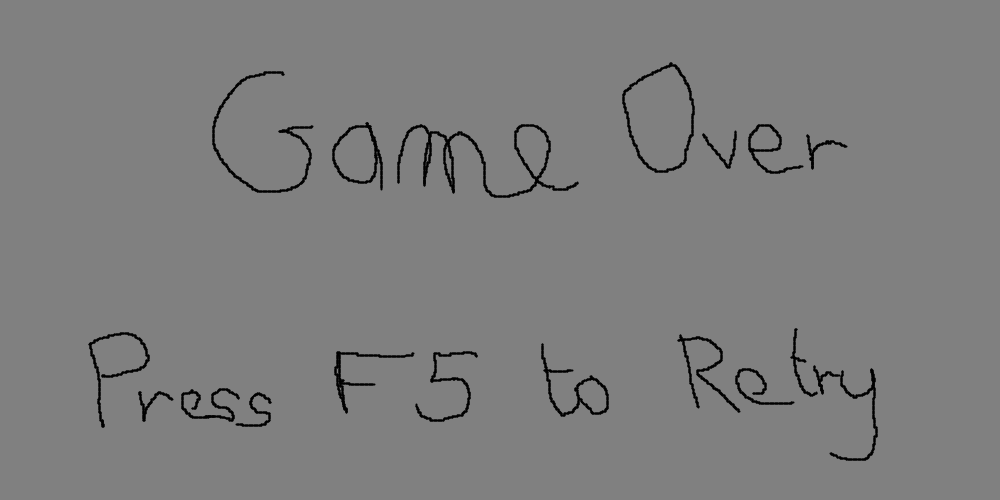 Game Over
Press F5 to Retry